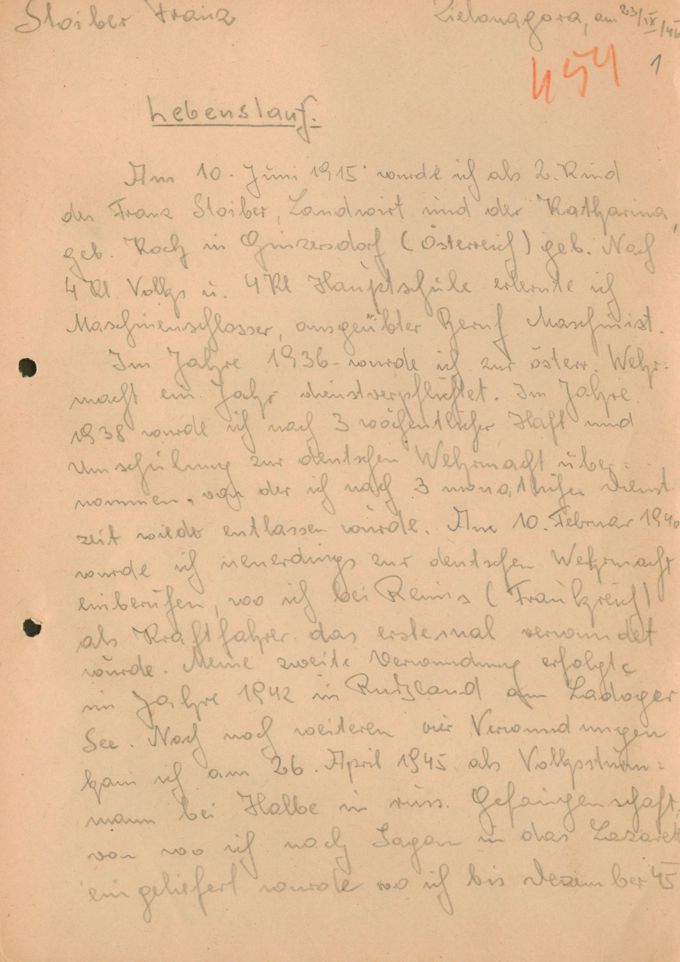 Stoiber Franz
Zielonagora, am 23/IX/46
454 1
Lebenslauf.
Am 10. Juni 1915 wurde ich als 2. Kind
des Franz Stoiber, Landwirt und der Katharina,
geb. Koch in Ginzersdorf (Österreich) geb. Nach
4 Kl Volks u. 4 Kl Hauptschule erlernte ich
Maschinenschlosser, ausgeübter Beruf Maschinist.
Im Jahre 1936 wurde ich zur österr. Wehr-
macht ein Jahr dienstverpflichtet. Im Jahre
1938 wurde ich nach 3 wöchentlicher Haft und
Umschulung zur deutschen Wehrmacht über-
nommen, von der ich nach 3 monatlicher Dienst
zeit wieder entlassen wurde. Am 10. Februar 1940
wurde ich neuerdings zur deutschen Wehrmacht
einberufen, wo ich bei Reims (Frankreich)
als Kraftfahrer das erstemal verwundet
wurde. Meine zweite Verwundung erfolgte
im Jahre 1942 in Rußland am Ladoger
See. Nach noch weiteren vier Verwundungen
kam ich am 26. April 1945 als Volkssturm=
mann bei Halbe in russ. Gefangenschaft,
von wo ich nach Sagan in das Lazarett
eingeliefert wurde wo ich bis Dezember 45